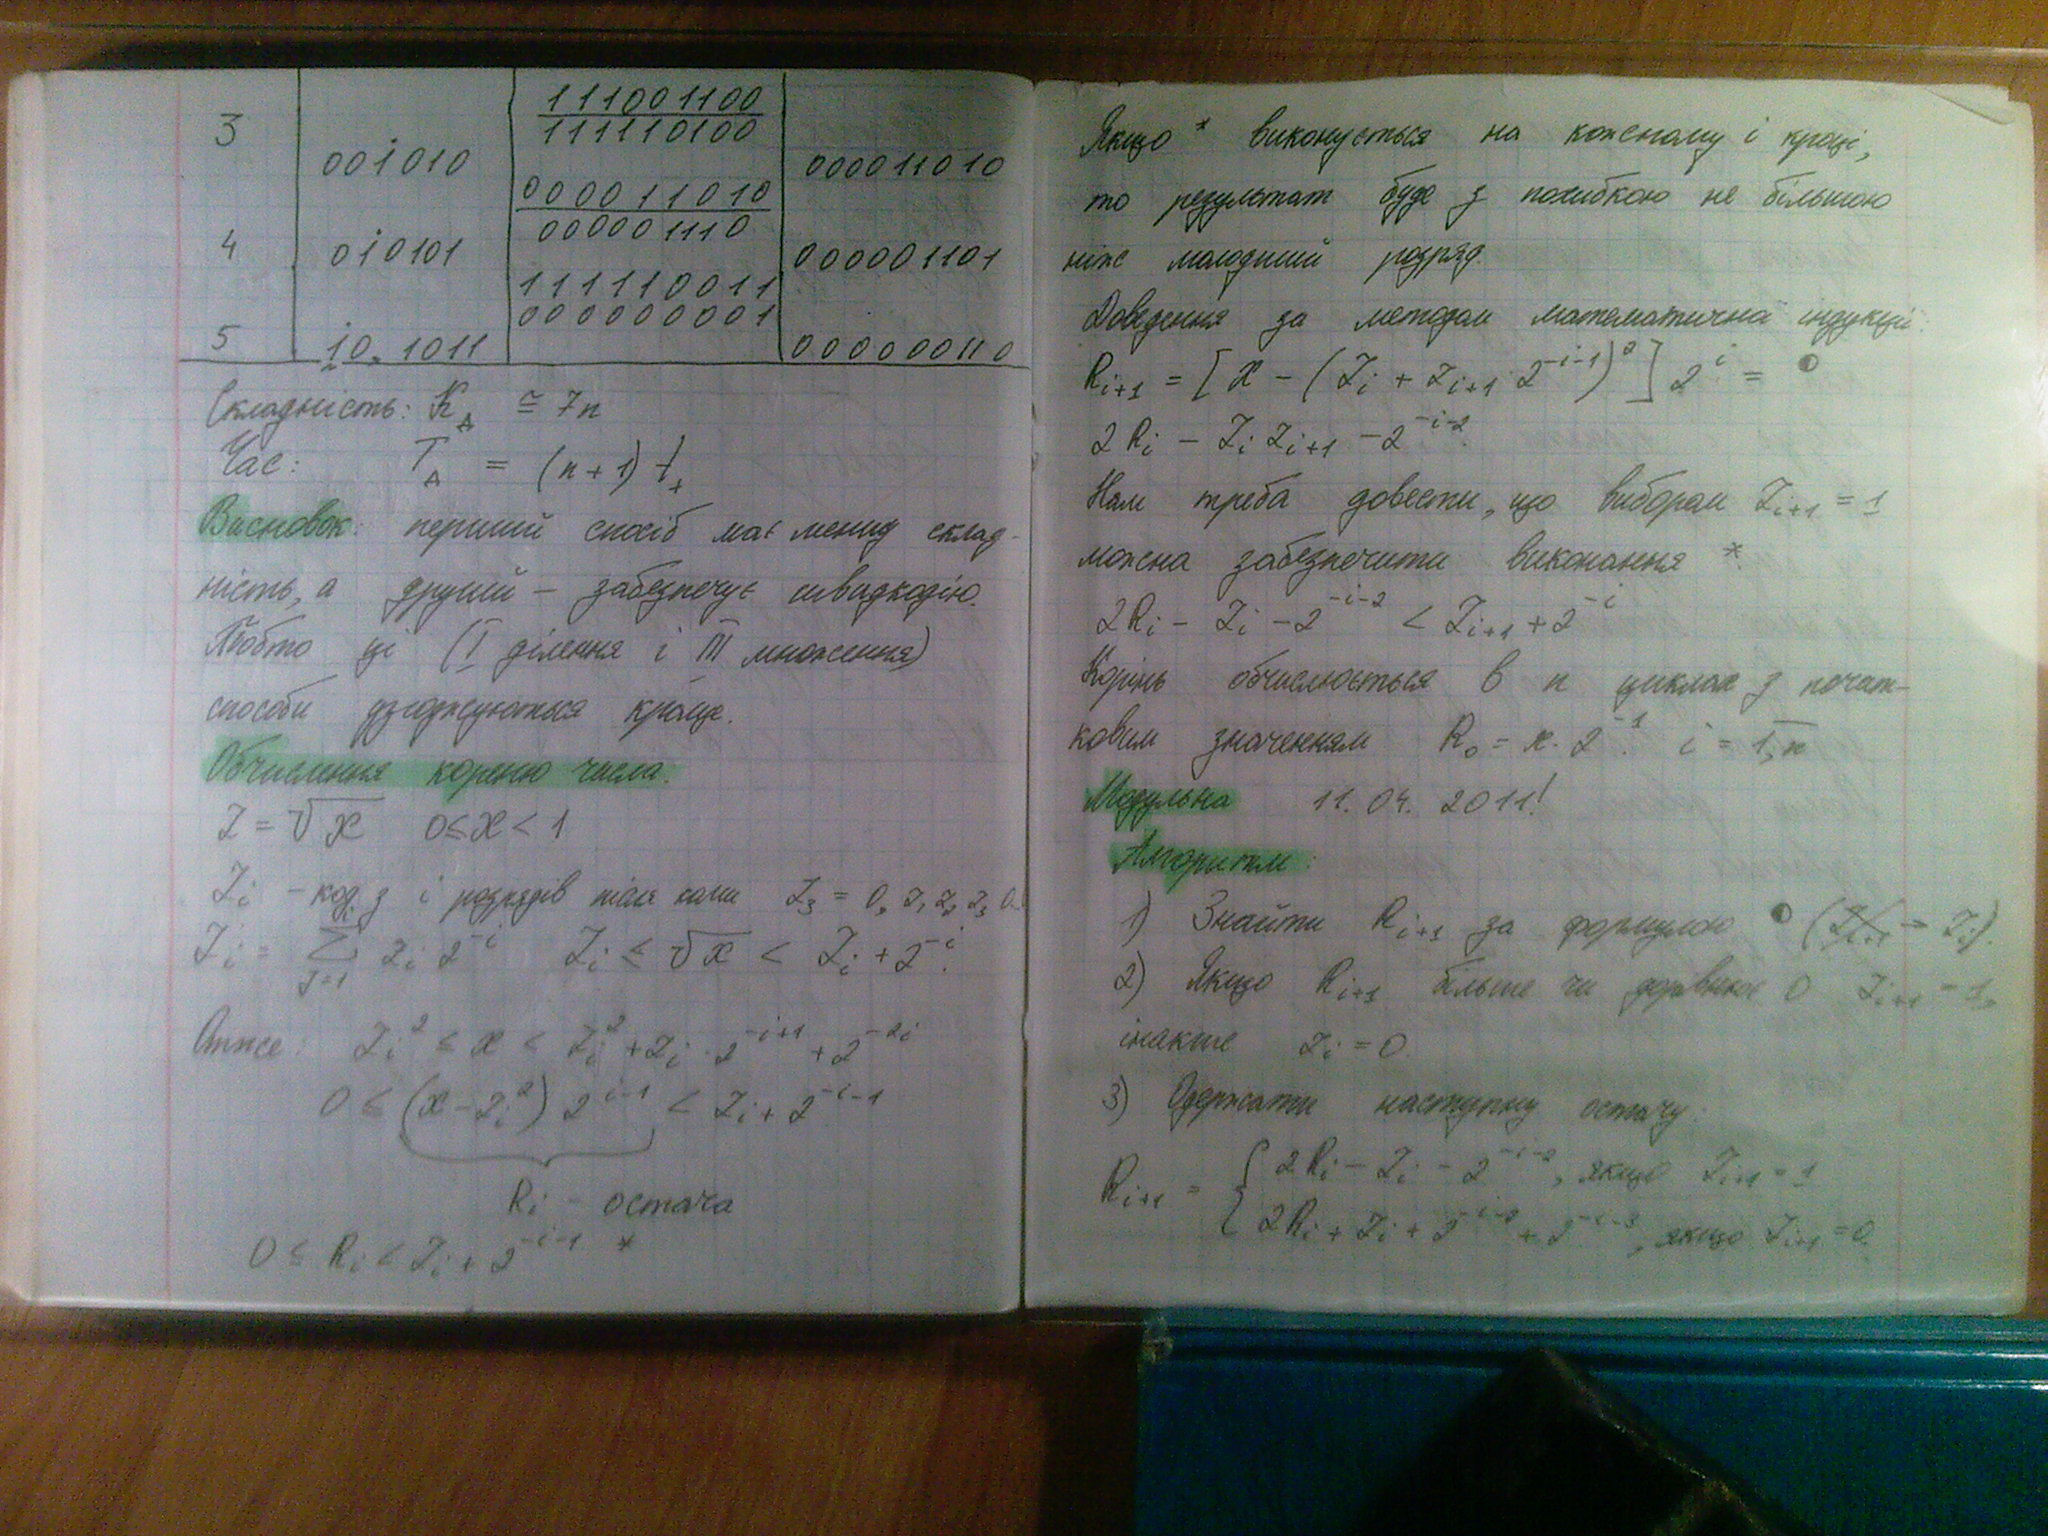 111001100
3 111110100
001010 000011010
000011010
4 010101 000001110 000001101
111110011
000000001
5 10.1011 000000110
Складність: K_д ≅ 7n
Час: T_д = (n+1) t_+
Висновок: перший спосіб має меншу склад-
ність, а другий – забезпечує швидкодію.
Тобто ці (I ділення і III множення)
способи узгоджуються краще.
Обчислення кореню числа.
Z = √x 0≤x<1
Z_i – код з i розрядів після коми Z_3 = 0, z_1 z_2 z_3 0..
Z_i = Σ_{j=1}^{i} z_i 2^{-i} Z_i ≤ √x < Z_i + 2^{-i}.
Отже: Z_i^2 ≤ x < Z_i^2 + Z_i · 2^{-i+1} + 2^{-2i}
0 ≤ (x – Z_i^2) 2^{i-1} < Z_i + 2^{-i-1}
R_i – остача
0 ≤ R_i < Z_i + 2^{-i-1} *
Якщо * виконується на кожному i кроці,
то результат буде з похибкою не більшою
ніж молодший розряд.
Доведення за методом математичної індукції:
R_{i+1} = [x – (Z_i + Z_{i+1} 2^{-i-1})^2] 2^i = ◐
2R_i – Z_i Z_{i+1} – 2^{-i-2}.
Нам треба довести, що вибором Z_{i+1} = 1
можна забезпечити виконання *.
2R_i – Z_i – 2^{-i-2} < Z_{i+1} + 2^{-i}
Корінь обчислюється в n циклах з почат-
ковим значенням R_0 = x · 2^{-1}. i = 1,n
Модульна 11.04.2011!
Алгоритм:
1) Знайти R_{i+1} за формулою ◐
2) Якщо R_{i+1} більше чи дорівнює 0 Z_{i+1} = 1,
інакше Z_i = 0.
3) Одержати наступну остачу:
R_{i+1} = { 2R_i – Z_i – 2^{-i-2}, якщо Z_{i+1} = 1
2R_i + Z_i + 2^{-i-2} + 2^{-i-3}, якщо Z_{i+1} = 0.